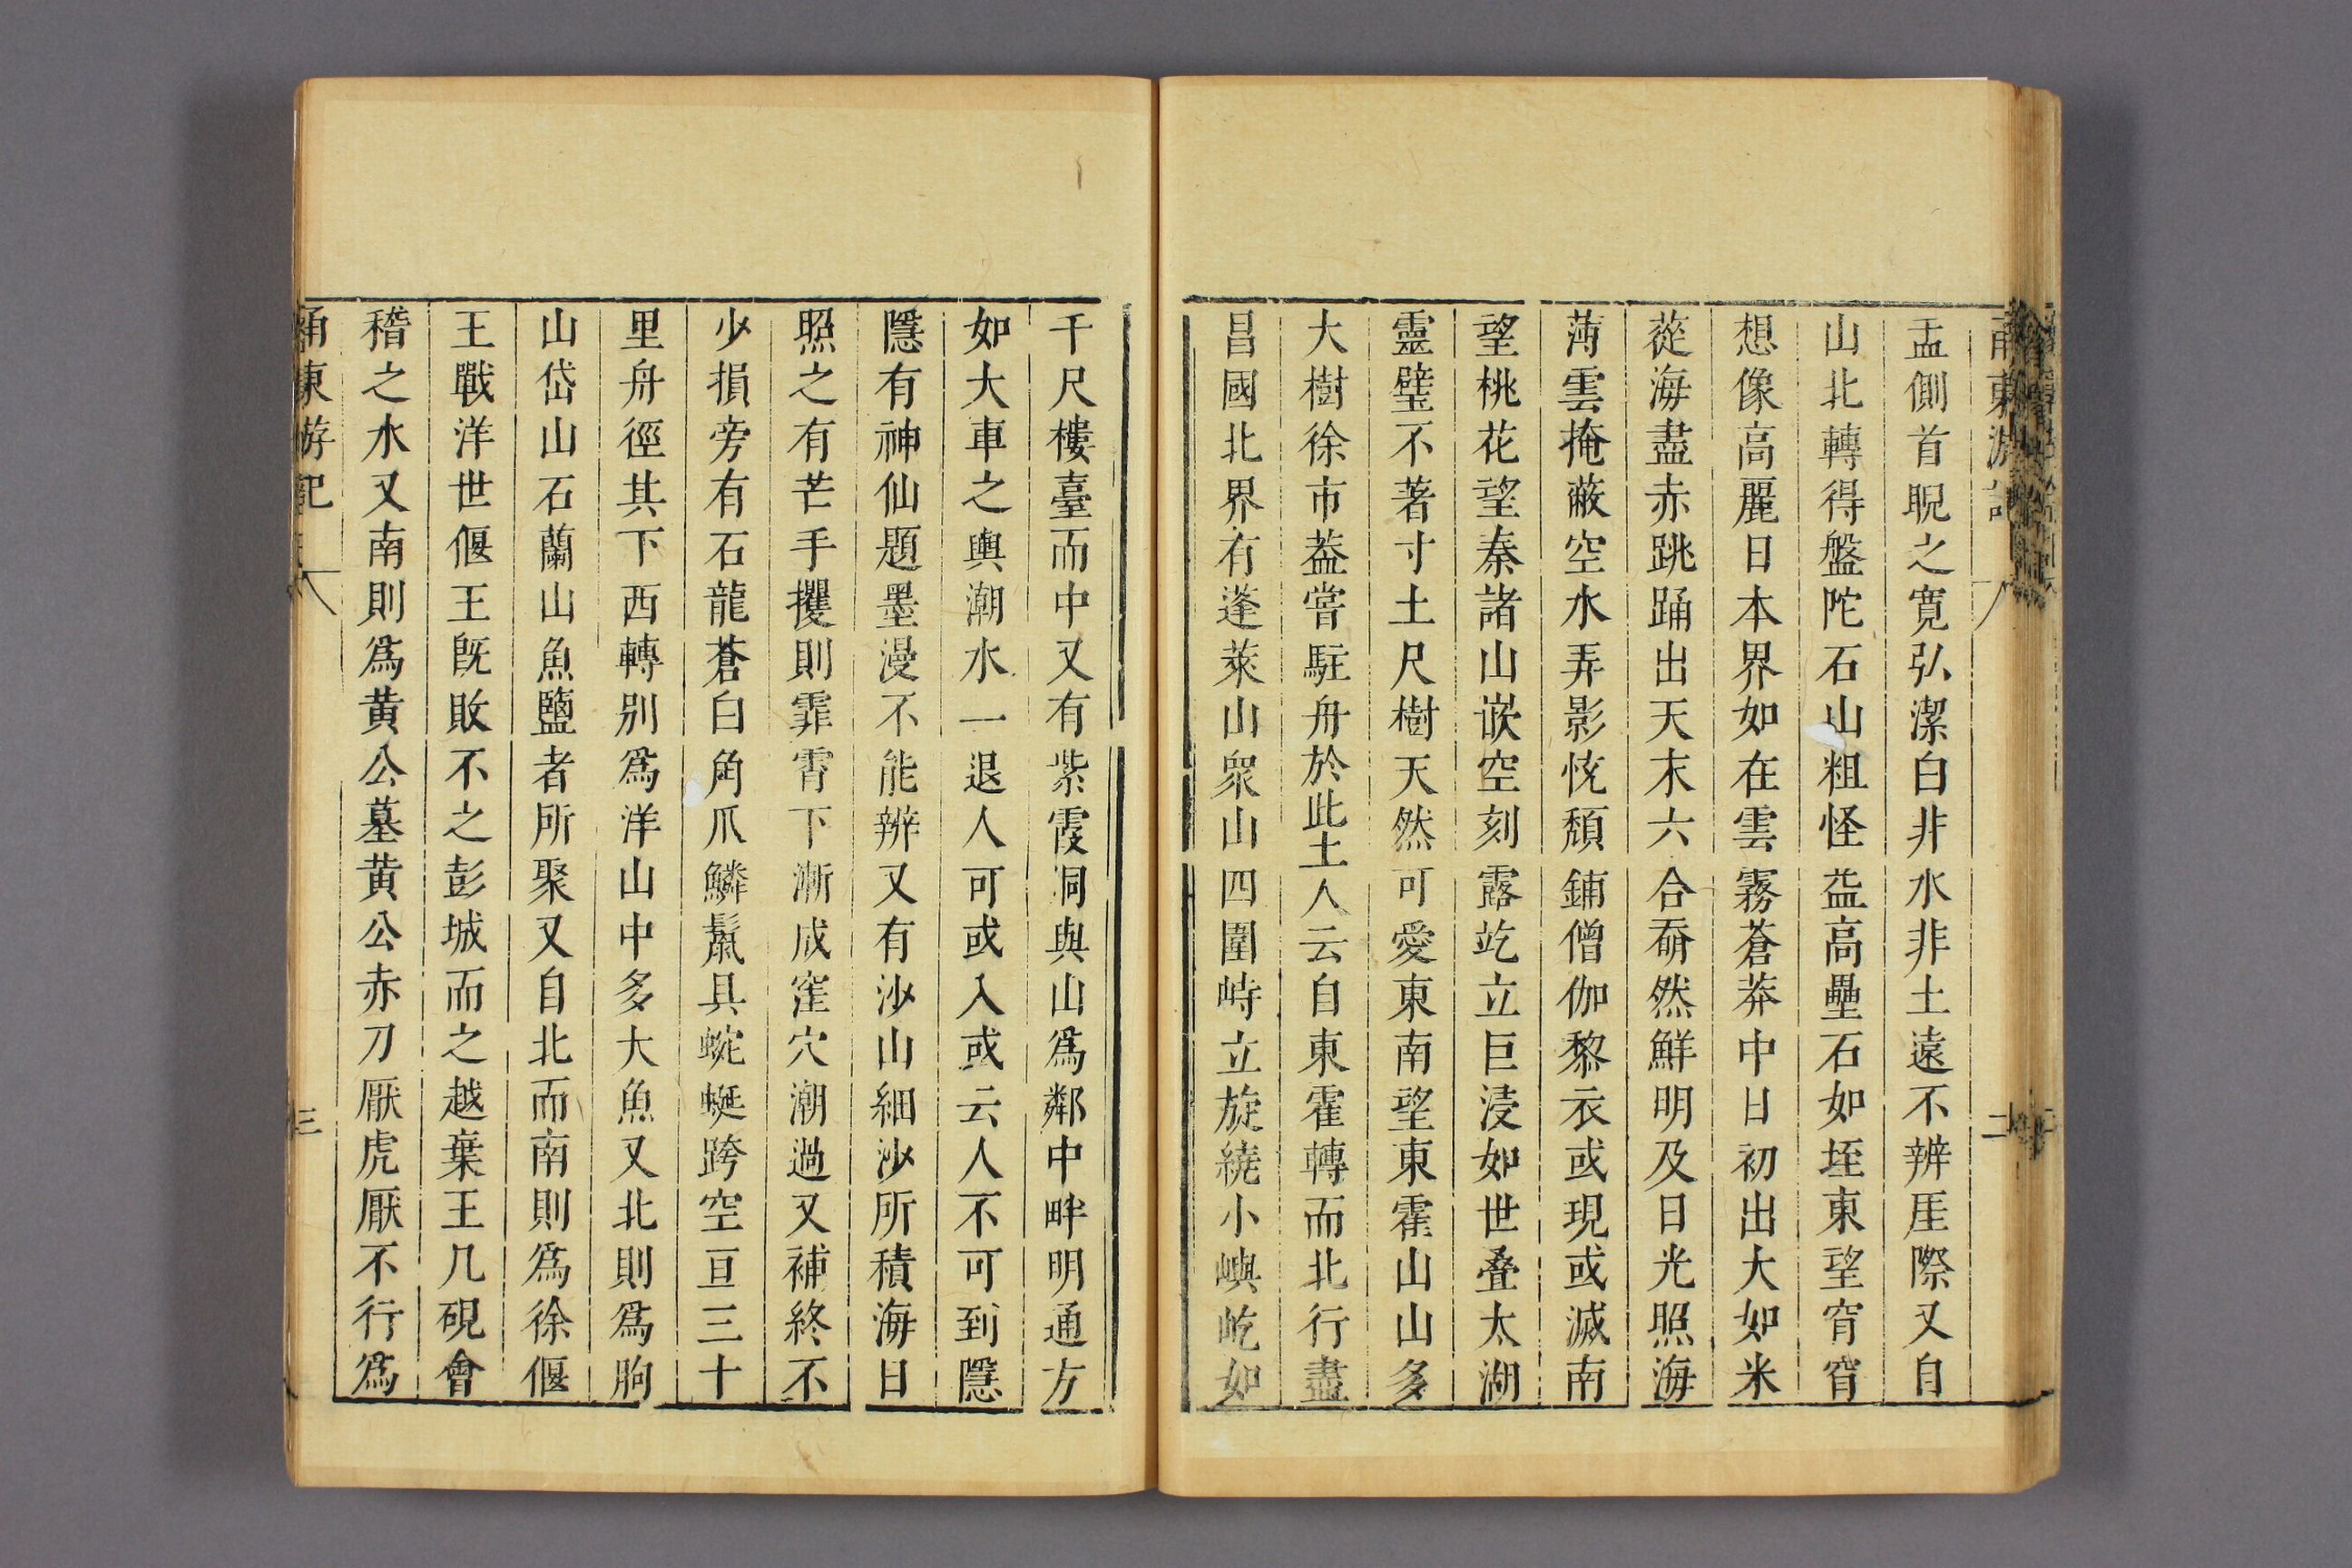 甬東游記
二
盂側首睨之寛弘潔白非水非土遠不辨厓際又自
山北轉得盤陀石山粗怪益高壘石如垤東望窅窅
想像高麗日本界如在雲霧蒼莽中日初出大如米
蓰海盡赤跳踊出天末六合奫然鮮明及日光照海
薄雲掩蔽空水弄影恍頹鋪僧伽黎衣或現或滅南
望桃花望秦諸山嵌空刻露屹立巨浸如世叠太湖
靈璧不著寸土尺樹天然可愛東南望東霍山山多
大樹徐市葢嘗駐舟於此土人云自東霍轉而北行盡
昌國北界有蓬萊山衆山四圍峙立旋繞小嶼屹如
千尺樓臺而中又有紫霞洞與山爲鄰中畔明通方
如大車之輿潮水一退人可或入或云人不可到隱
隱有神仙題墨漫不能辨又有沙山細沙所積海日
照之有芒手攫則霏霄下漸成窪穴潮過又補終不
少損旁有石龍蒼白角爪鱗鬛具蜿蜒跨空亘三十
里舟徑其下西轉别爲洋山中多大魚又北則爲朐
山岱山石蘭山魚鹽者所聚又自北而南則爲徐偃
王戰洋世偃王旣敗不之彭城而之越棄王几硯會
稽之水又南則爲黄公墓黄公赤刀厭虎厭不行爲
甬東游記
三